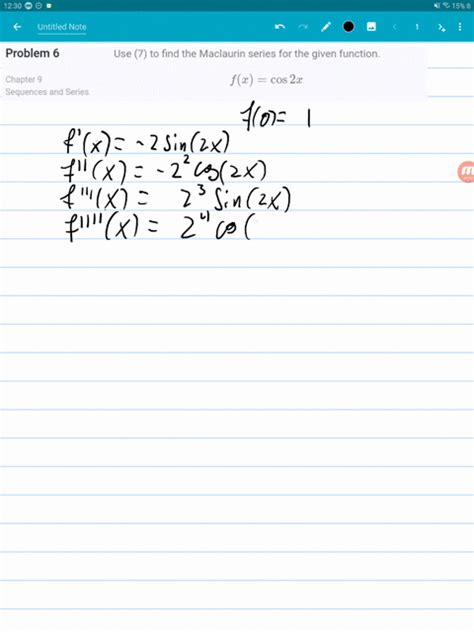 12:30 15%
Untitled Note 1
Problem 6 Use (7) to find the Maclaurin series for the given function.
Chapter 9 f(x) = cos 2x
Sequences and Series
f(0) = 1
f'(x) = -2 sin(2x)
f''(x) = -2² cos(2x)
f'''(x) = 2³ sin(2x)
f''''(x) = 2⁴ cos(